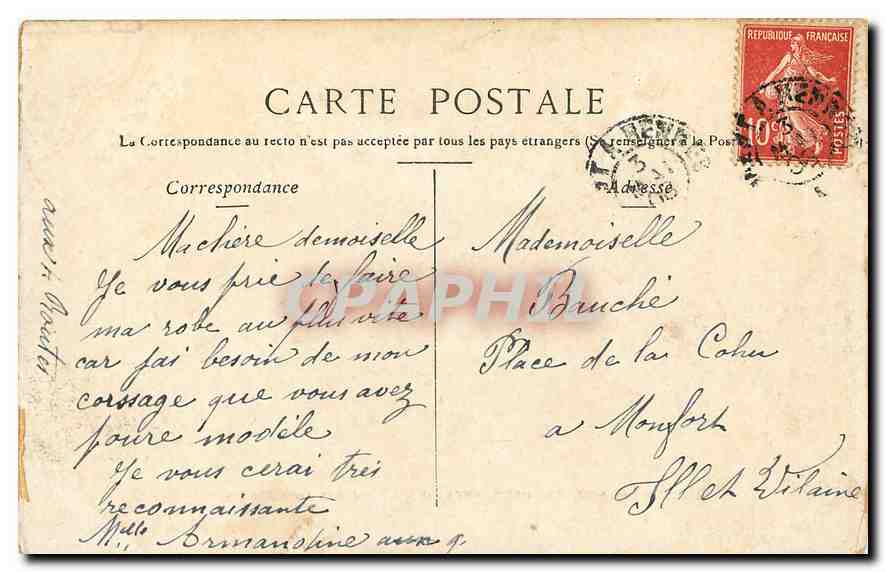 REPUBLIQUE FRANÇAISE
10c
POSTES
CARTE POSTALE
La Correspondance au recto n'est pas acceptée par tous les pays étrangers (Se renseigner à la Poste)
Correspondance
Adresse
Ma chère demoiselle
Je vous prie de faire
ma robe au plus vite
car jai besoin de mon
corssage que vous avez
poure modèle
Je vous cerai très
reconnaissante
Melle Armandine aux 4
aux 4 Routes
Mademoiselle
Bauché
Place de la Cohu
a Monfort
Ill et Vilaine
CPAPHIL